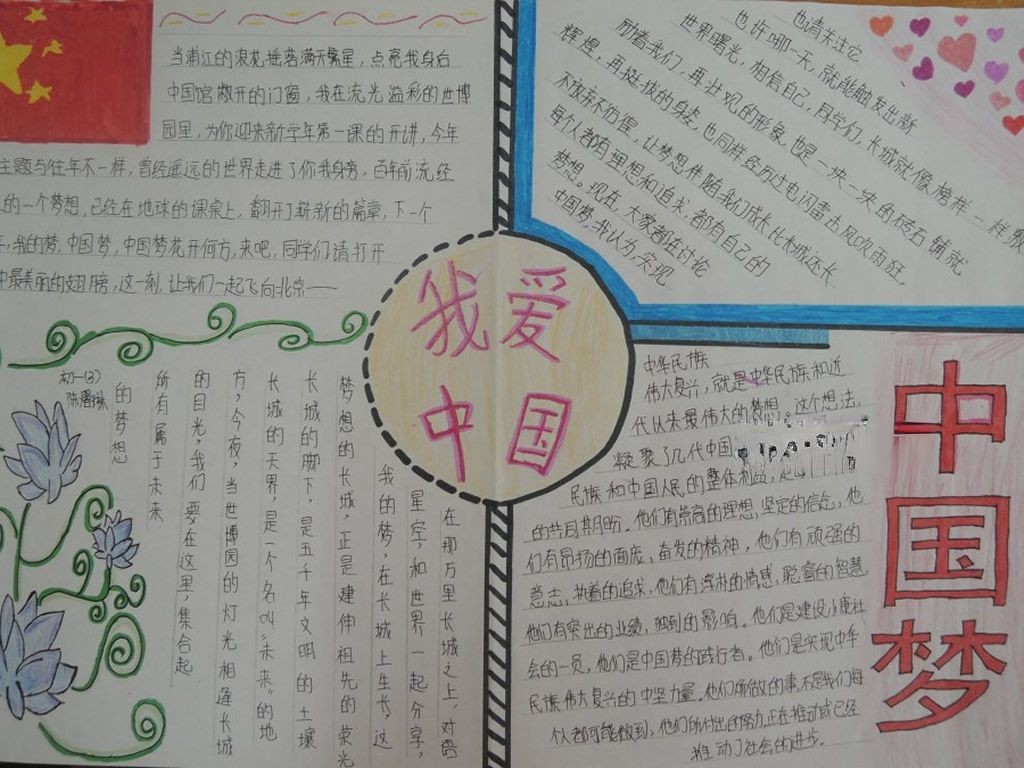 当浦江的浪花摇荡满天繁星，点亮我身后
中国馆敞开的门窗，我在流光溢彩的世博
园里，为你迎来新学年第一课的开讲，今年
主题与往年不一样，曾经遥远的世界走进了你我身旁，百年前流经
的一个梦想，已经在地球的课桌上，翻开了崭新的篇章，下一个
，我的梦，中国梦，中国梦花开何方，来吧，同学们请打开
中最美丽的翅膀，这一刻，让我们一起飞向北京——
也请关注它
也许哪一天，就能触发出新
世界曙光，相信自己，同学们，长城就像榜样一样激
励着我们，再壮观的形象，也是一块一块的砖石铺就
辉煌，再挺拔的身姿，也同样经历过电闪雷击风吹雨狂，
不放弃不彷徨，让梦想伴随我们成长比长城还长
每个人都有理想和追求，都有自己的
梦想。现在，大家都在讨论
中国梦，我认为，实现
我爱
中国
在那万里长城之上，对着
星空，和世界一起分享，
我的梦，在长城上生长，这
梦想的长城，正是建伸祖先的荣光
长城的脚下，是五千年文明的土壤
长城的天界，是一个名叫“未来”的地
方，今夜，当世博园的灯光相连长城
的目光，我们要在这里，集合起
所有属于未来
的梦想
初一(3)
中华民族
伟大复兴，就是中华民族和近
代从来最伟大的梦想。这个想法，
凝聚了几代中国
民族和中国人民的整体利益，是
的共同期盼。他们有崇高的理想，坚定的信念，他
们有昂扬的面庞，奋发的精神，他们有顽强的
意志，执着的追求，他们有淳朴的情感，聪睿的智慧，
他们有突出的业绩，独到的影响。他们是建设小康社
会的一员，他们是中国梦的践行者。他们是实现中华
民族伟大复兴的中坚力量。他们所做的事，不是我们每
个人都可能做到，他们所付出的努力正在推动或已经
推动了社会的进步。
中国梦